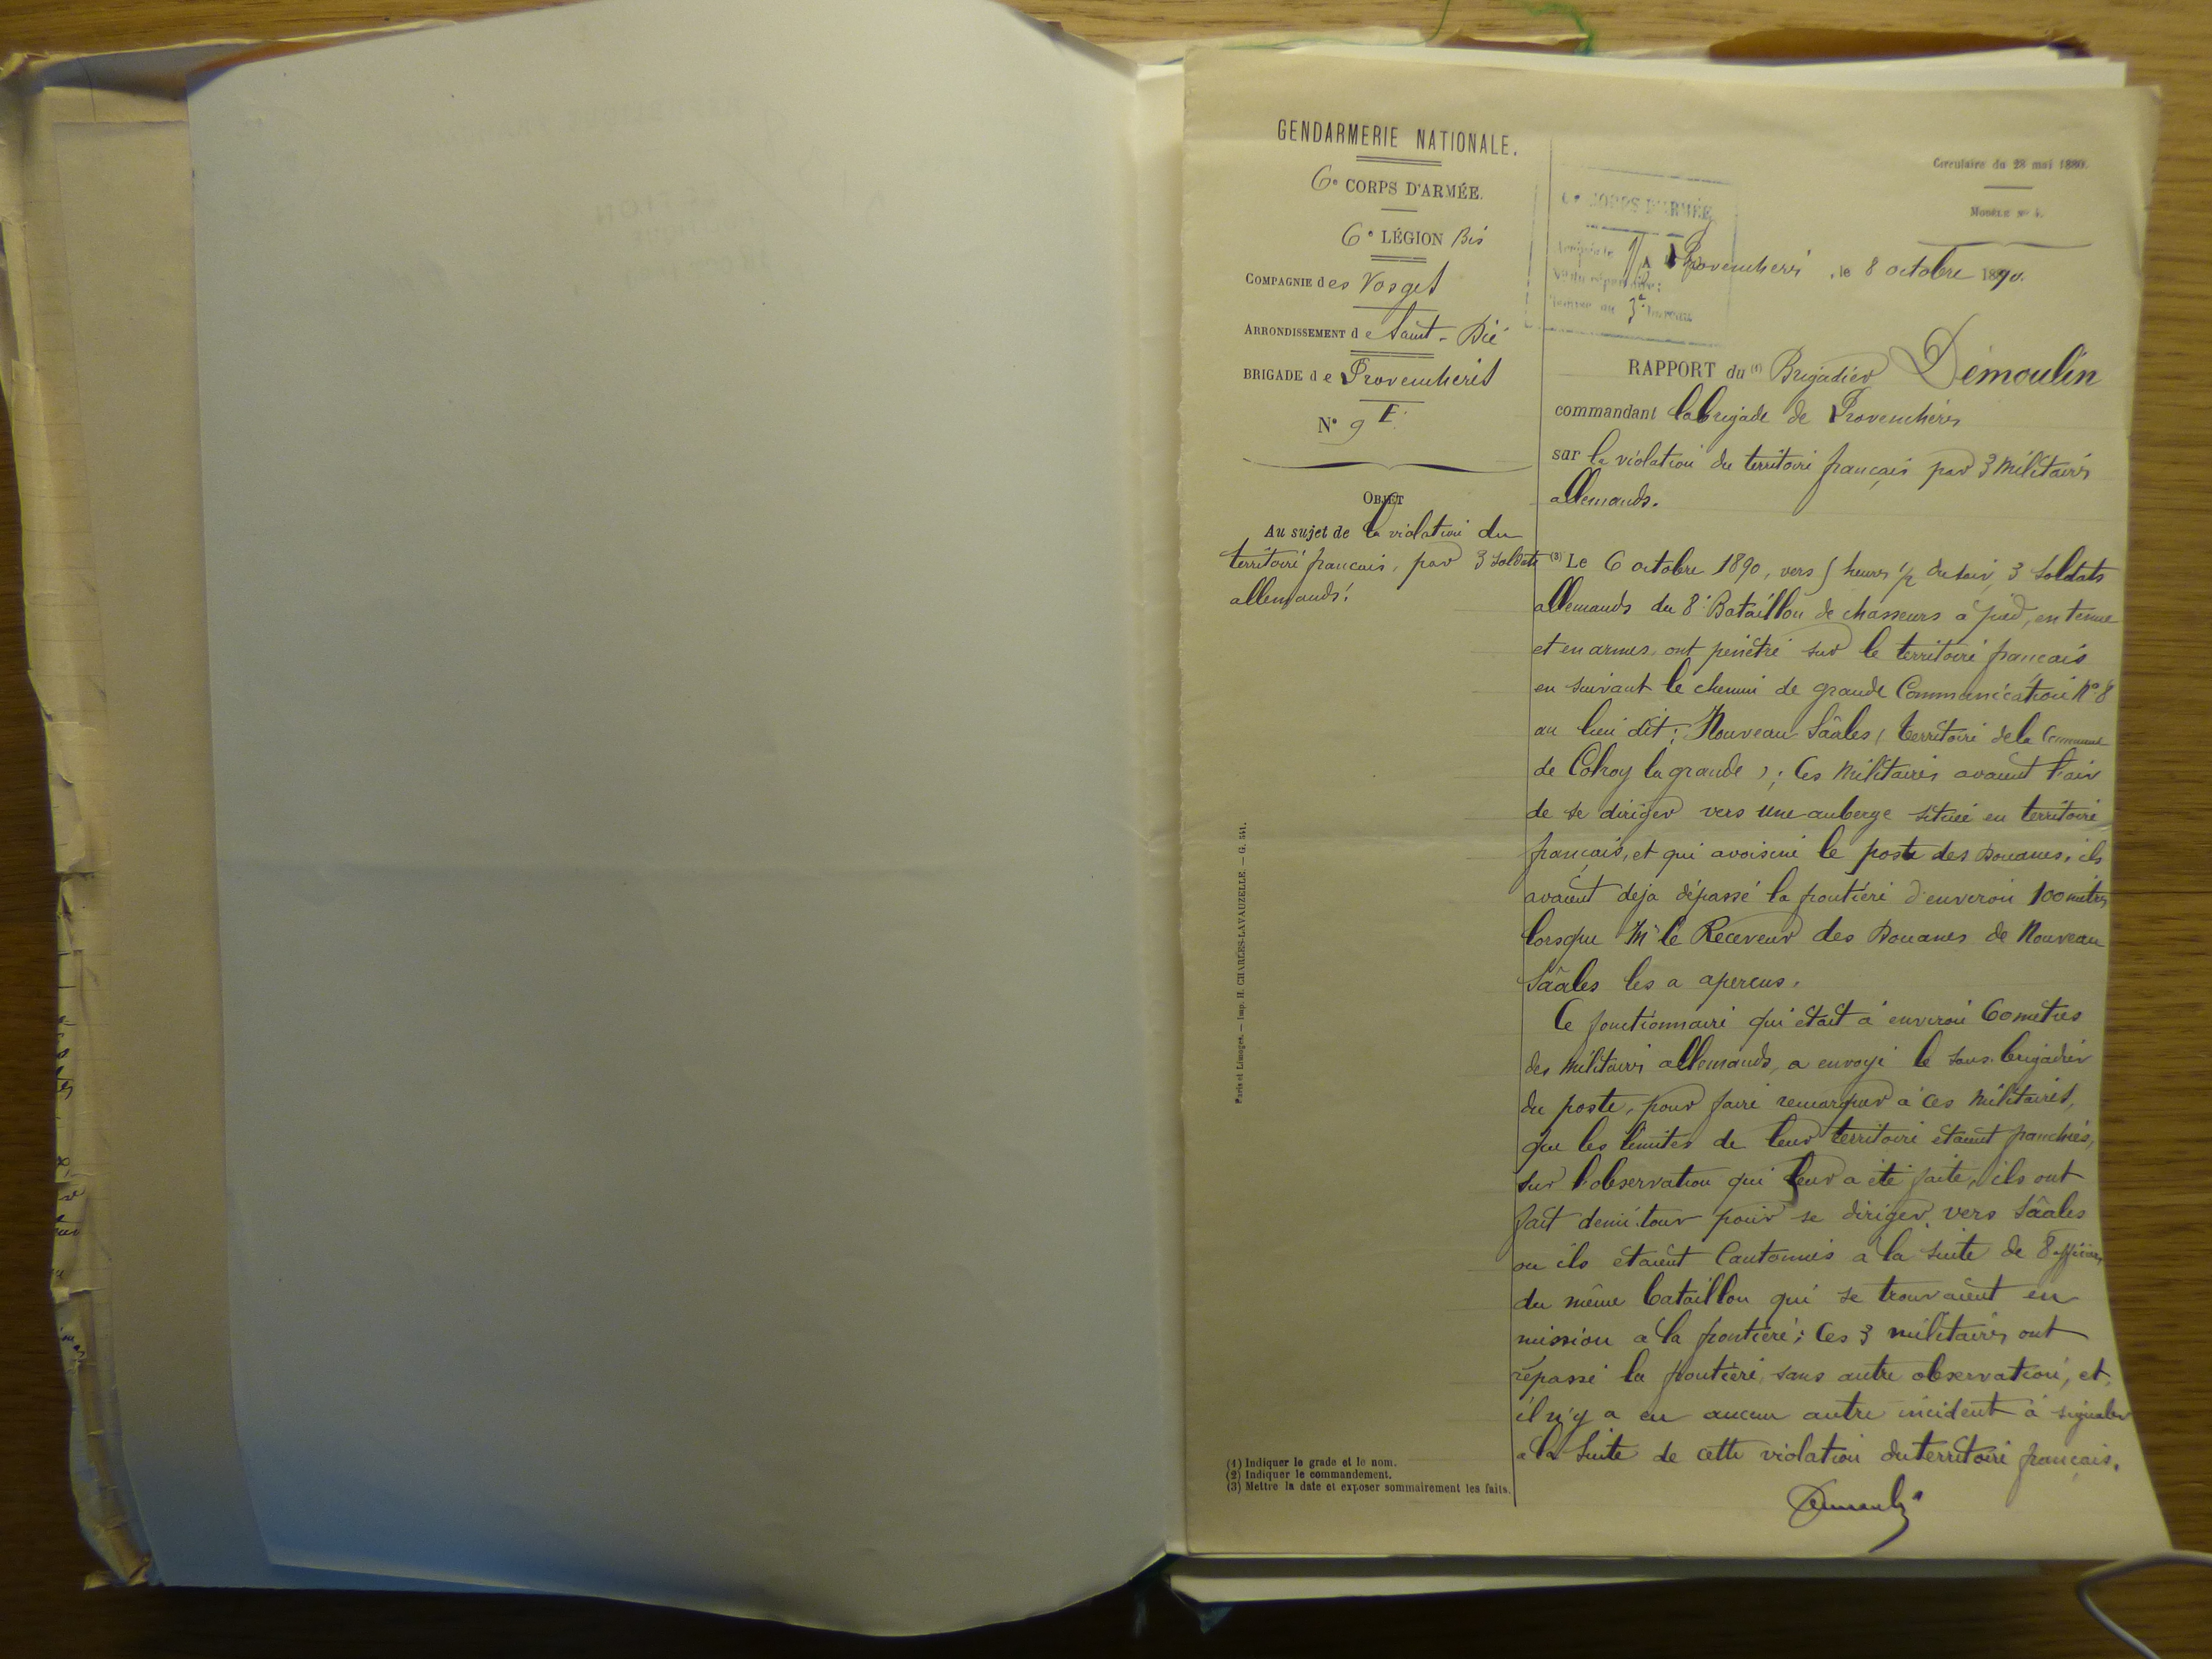 GENDARMERIE NATIONALE.
6e CORPS D'ARMÉE.
6e LÉGION Bis
COMPAGNIE des Vosges
ARRONDISSEMENT de Saint-Dié
BRIGADE de Provenchères
N° 9 E.
OBJET
Au sujet de la violation du
territoire francais, par 3 soldats
allemands.
Paris et Limoges. — Imp. H. CHARLES-LAVAUZELLE. — G. 541.
(1) Indiquer le grade et le nom.
(2) Indiquer le commandement.
(3) Mettre la date et exposer sommairement les faits.
Circulaire du 28 mai 1880.
MODÈLE N° 4.
6e CORPS D'ARMÉE
3e Bureau
Provenchères, le 8 octobre 1890.
RAPPORT du (1) Brigadier Démoulin
commandant la brigade de Provenchères
sur la violation du territoire français par 3 militaires
allemands.
(3) Le 6 octobre 1890, vers 5 heures 1/2 du soir, 3 soldats
allemands du 8e Bataillon de chasseurs à pied, en tenue
et en armes, ont pénétré sur le territoire français
en suivant le chemin de grande Communication N° 8
au lieu dit: Nouveau Sâales (territoire de la Commune
de Colroy la grande); Ces militaires avaient l'air
de se diriger vers une auberge située en territoire
français, et qui avoisine le poste des Douanes, ils
avaient déja dépassé la frontière d'environ 100 mètres
lorsque Mr le Receveur des Douanes de Nouveau
Sâales les a apercus.
Ce fonctionnaire qui était à environ 60 mètres
des militaires allemands, a envoyé le sous-brigadier
du poste, pour faire remarquer à ces militaires,
que les limites de leur territoire étaient franchies,
sur l'observation qui leur a été faite, ils ont
fait demi-tour pour se diriger vers Sâales
ou ils étaient Cantonnés à la suite de 8 officiers
du même bataillon qui se trouvaient en
mission à la frontière; Ces 3 militaires ont
repassé la frontière sans autre observation, et
il n'y a eu aucun autre incident à signaler
a la suite de cette violation du territoire français.
Demoulin